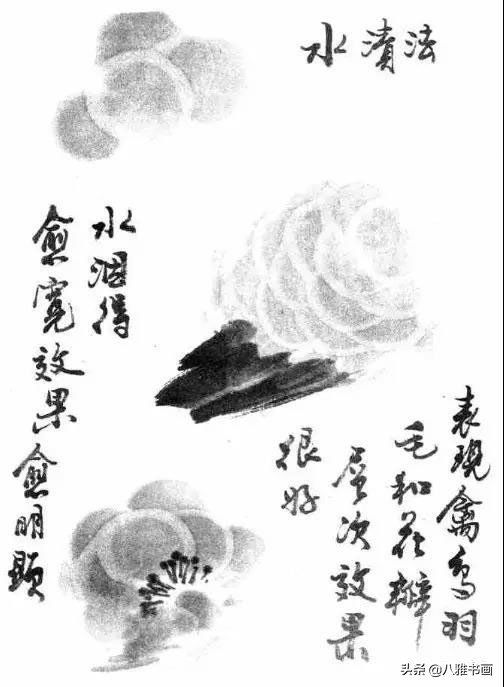 水漬法
水洇得
愈寬效果愈明顯
表現禽鸟羽
毛和花瓣
层次效果
很好
头条 @八雅书画